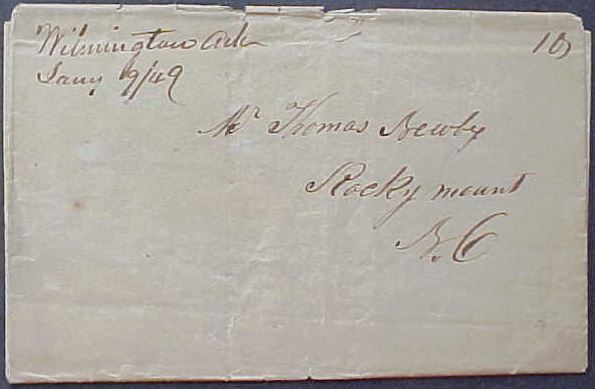 Wilmington Ark
Jany 9/49
10
Mr Thomas Newby
Rocky mount
N. C